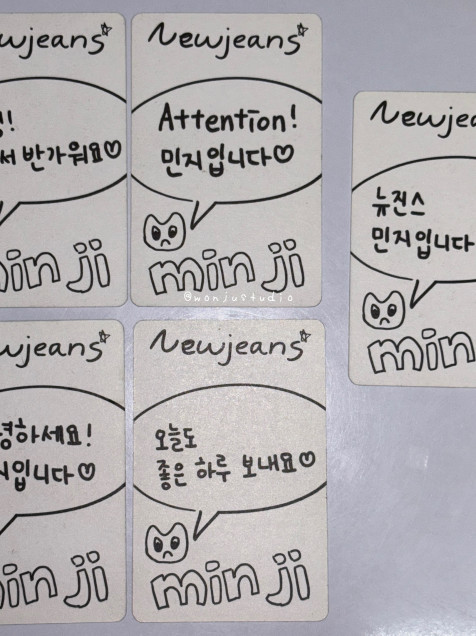 Newjeans
반가워요♡
min ji
Newjeans
Attention!
민지입니다♡
min ji
@wonjustudio
뉴진스
민지입니다
min
하세요!
입니다♡
min ji
Newjeans
오늘도
좋은 하루 보내요♡
min ji